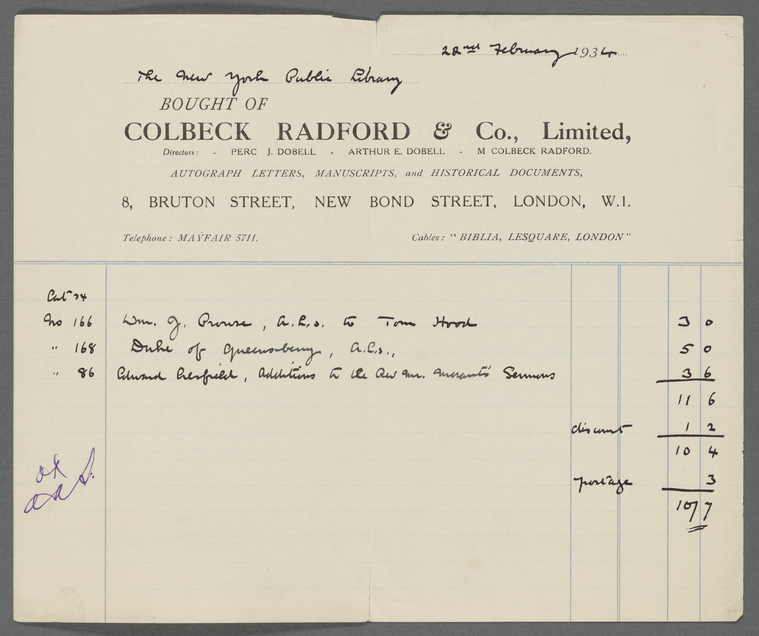 22nd February 1934
The New York Public Library
BOUGHT OF
COLBECK RADFORD & Co., Limited,
Directors: - PERC J. DOBELL - ARTHUR E. DOBELL - M COLBECK RADFORD.
AUTOGRAPH LETTERS, MANUSCRIPTS, and HISTORICAL DOCUMENTS,
8, BRUTON STREET, NEW BOND STREET, LONDON, W.1.
Telephone: MAYFAIR 5711. Cables: "BIBLIA, LESQUARE, LONDON"
Cat 34
No 166 Wm. J. Prowse, A.L.s. to Tom Hood 3 0
" 168 Duke of Queensberry, A.L.s., 5 0
" 86 Edward, Additions to the Rev Mr. Morants' Sermons 3 6
11 6
discount 1 2
10 4
postage 3
10/7
OK